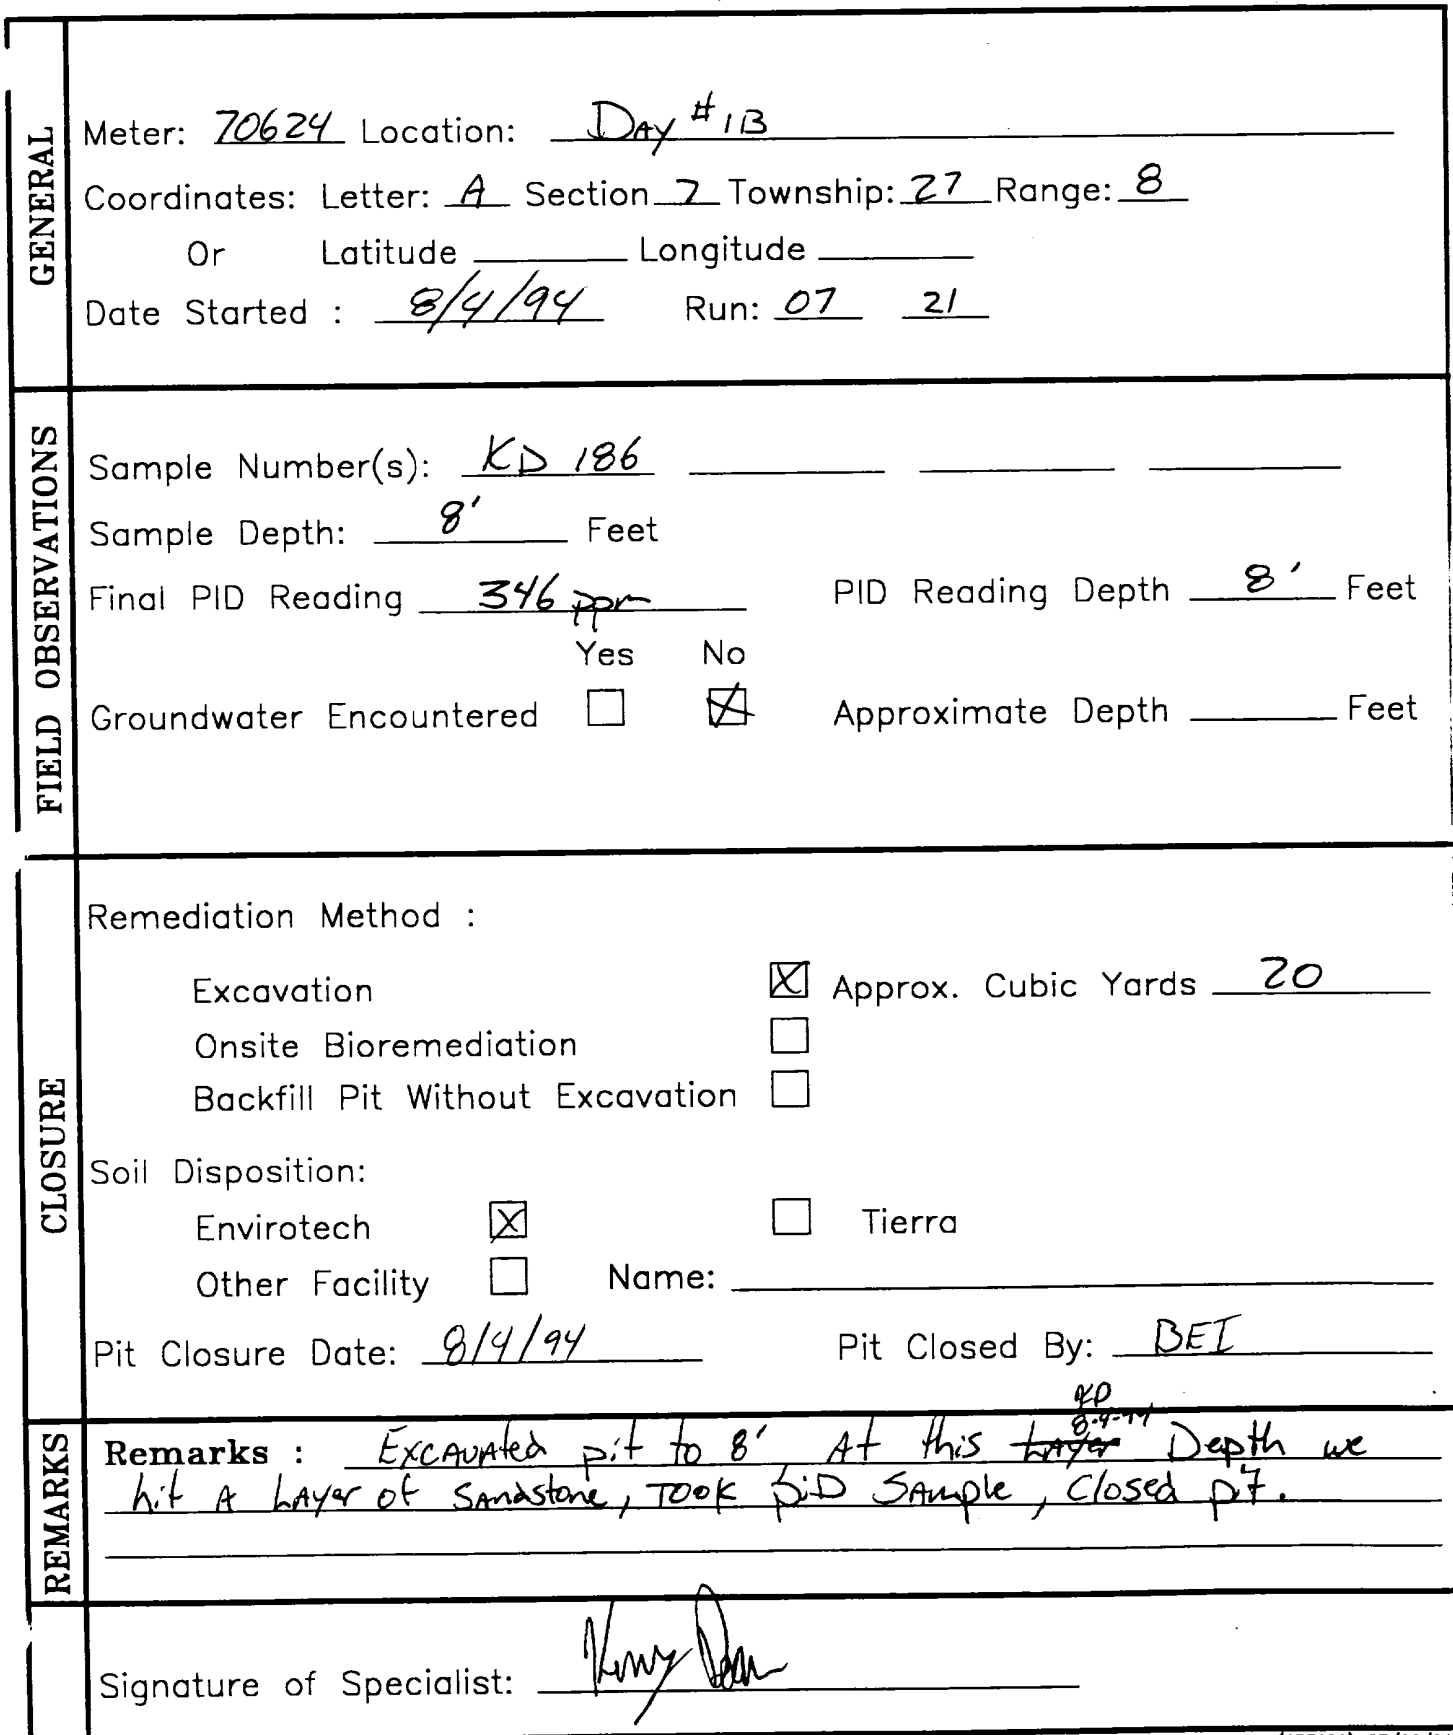 GENERAL
Meter: 70624 Location: Day #1B
Coordinates: Letter: A Section 7 Township: 27 Range: 8
Or Latitude Longitude
Date Started : 8/4/94 Run: 07 21
FIELD OBSERVATIONS
Sample Number(s): KD 186
Sample Depth: 8' Feet
Final PID Reading 346 ppm PID Reading Depth 8' Feet
Yes No
Groundwater Encountered Approximate Depth Feet
CLOSURE
Remediation Method :
Excavation X Approx. Cubic Yards 20
Onsite Bioremediation
Backfill Pit Without Excavation
Soil Disposition:
Envirotech X Tierra
Other Facility Name:
Pit Closure Date: 8/4/94 Pit Closed By: BEI
REMARKS
KD
8-4-94
Remarks : Excavated pit to 8' At this Layer Depth we
hit A Layer of Sandstone, Took PiD Sample, Closed pit.
Signature of Specialist: Kenny Dean